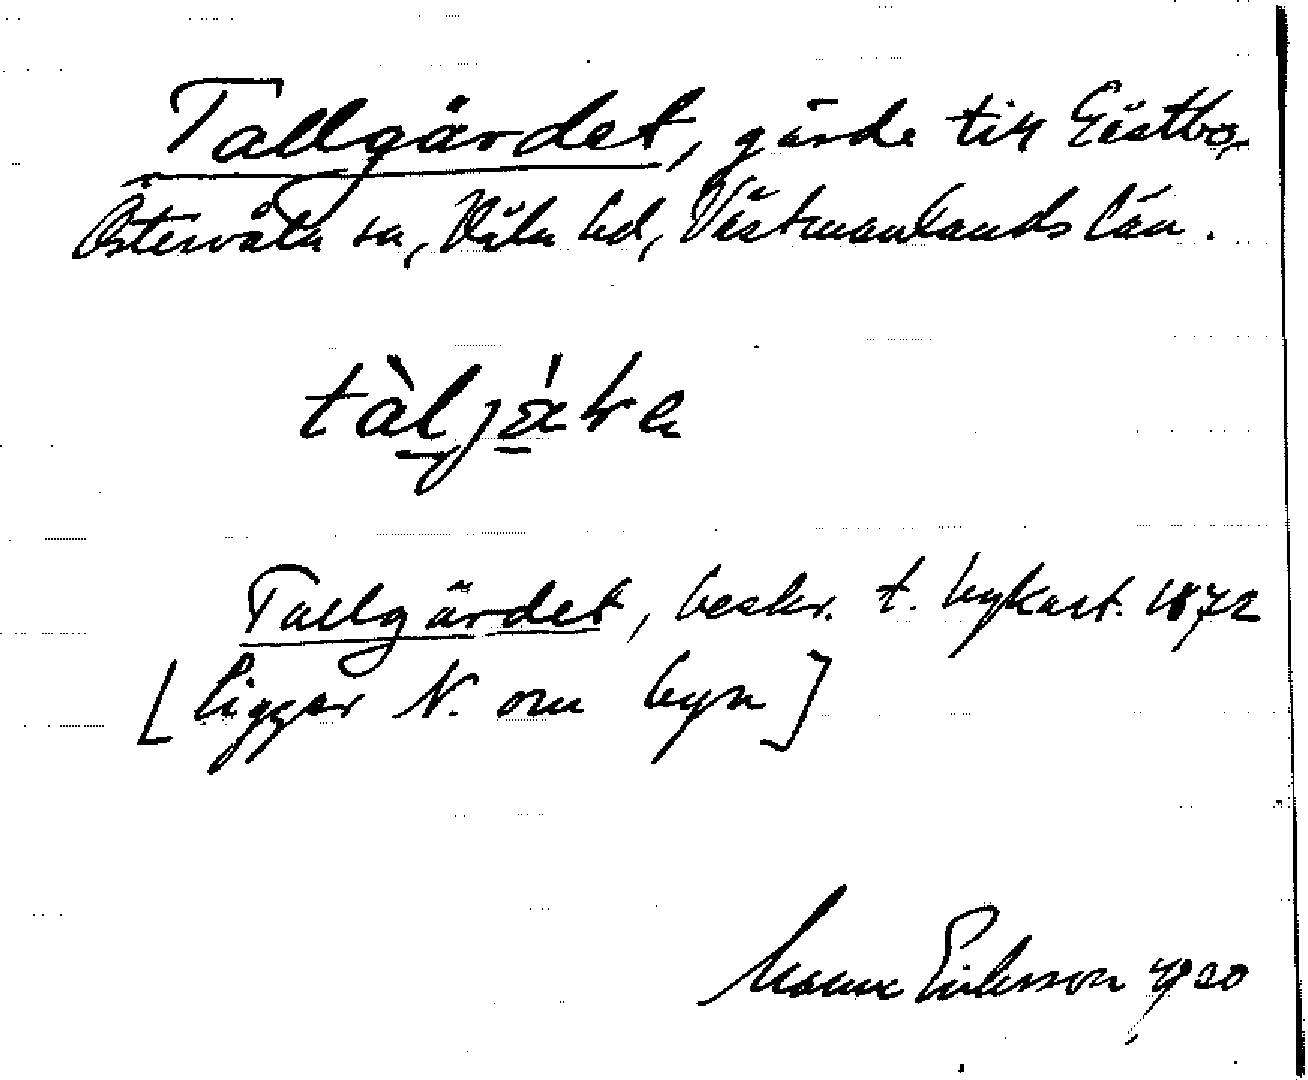 Tallgärdet, gärde till Gästbo,
Östervåla sn, Våla hd, Västmanlands län.
tàljáḷe
Tallgärdet, beskr. t. bykart. 1872
[ligger N. om byn]
Manne Eriksson 1930